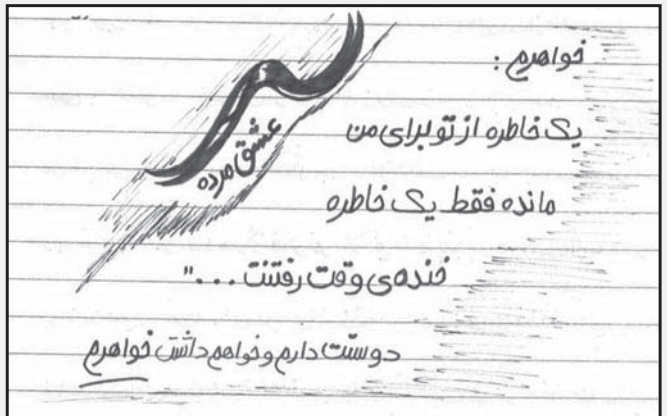 خواهرم :
عشق مرده
یک خاطره از تو برای من
مانده فقط یک خاطره
خنده‌ی وقت رفتنت ..."
دوستت دارم و خواهم داشت خواهرم